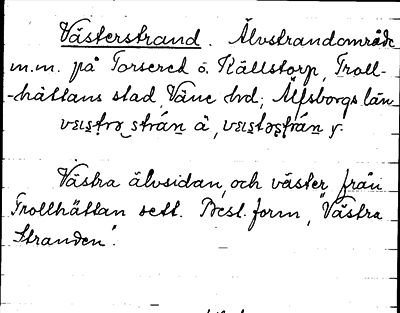 Västerstrand. Älvstrandområde
m.m. på Torsered o. Källstorp, Troll-
-hättans stad, Väne hd; Älfsborgs län
Västra älvsidan, och väster från
Trollhättan sett. Best. form, "Västra
Stranden".